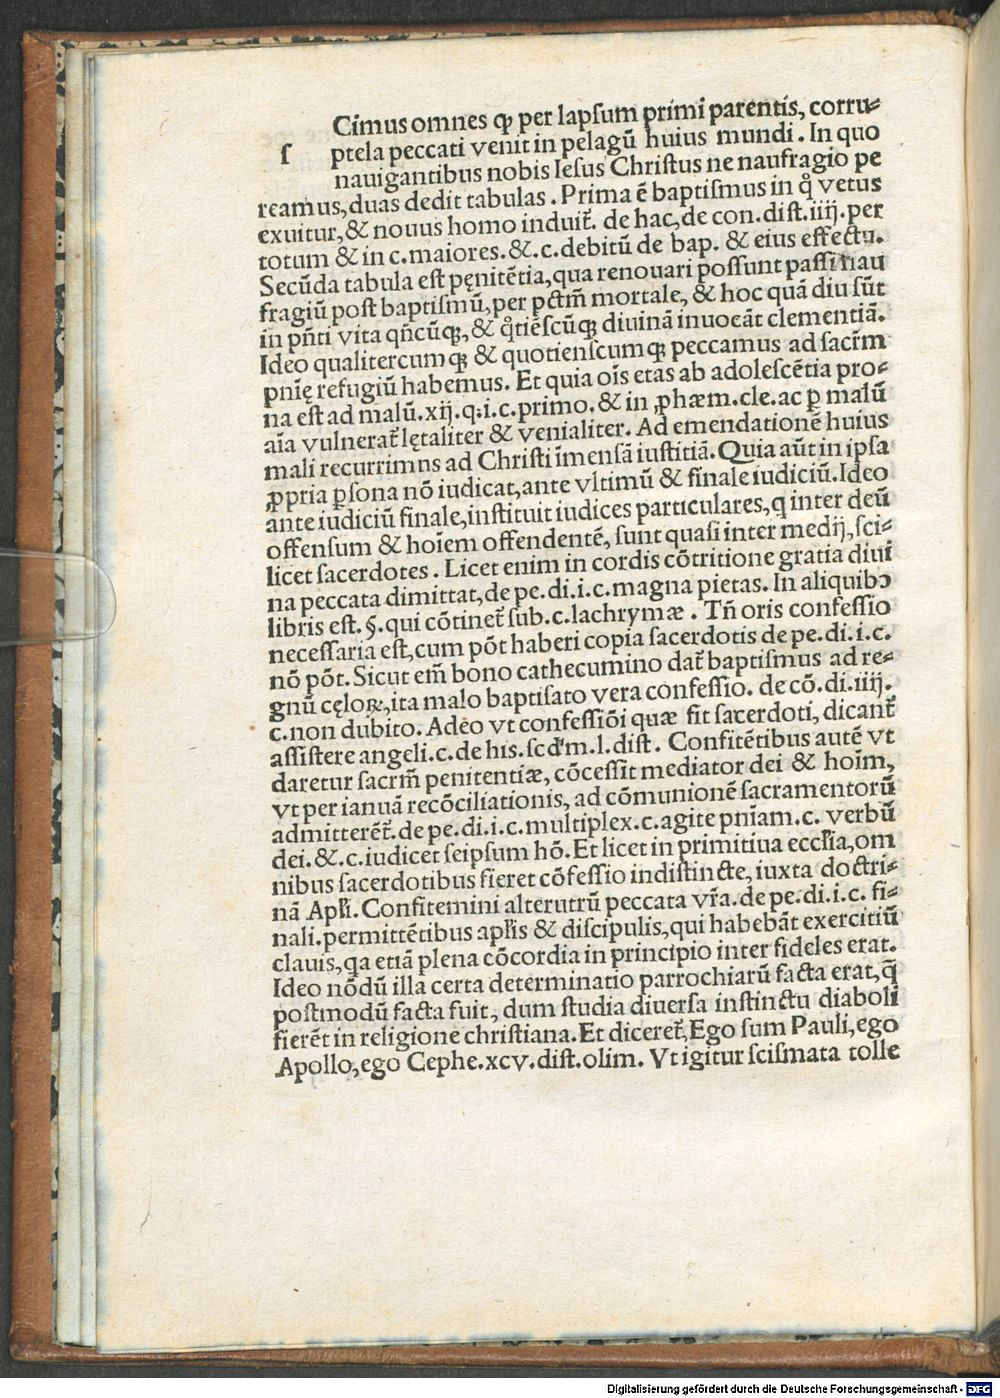 ſ
Cimus omnes ꝙ per lapſum primi parentis, corru⸗
ptela peccati venit in pelagū huius mundi. In quo
nauigantibus nobis Ieſus Chriſtus ne naufragio pe
reamus, duas dedit tabulas. Prima ē baptiſmus in qͦ vetus
exuitur, & nouus homo induit᷑. de hac, de con. diſt. iiij. per
totum & in c. maiores. &. c. debitū de bap. & eius effectu.
Secūda tabula eſt pęnitētia, qua renouari poſſunt paſſi nau
fragiū poſt baptiſmū, per pctm̄ mortale, & hoc quā diu ſūt
in pn̄ti vita qn̄cūqꝫ, & qͦtieſcūqꝫ diuinā inuocāt clementiā.
Ideo qualitercumqꝫ & quotienſcumqꝫ peccamus ad ſacr̄m
pnię refugiū habemus. Et quia oīs etas ab adoleſcētia pro⸗
na eſt ad malū. xij. q. i. c. primo. & in ꝓhæm. cle. ac ꝑ malū
aīa vulnerat᷑ lętaliter & venialiter. Ad emendationē huius
mali recurrimus ad Chriſti īmenſā iuſtitiā. Quia aūt in ipſa
ꝓpria ꝑſona nō iudicat, ante vltimū & finale iudiciū. Ideo
ante iudiciū finale, inſtituit iudices particulares, q inter deū
offenſum & hoīem offendentē, ſunt quaſi inter medij, ſci⸗
licet ſacerdotes. Licet enim in cordis cōtritione gratia diui
na peccata dimittat, de pe. di. i. c. magna pietas. In aliquibꝰ
libris eſt. §. qui cōtinet᷑ ſub. c. lachrymæ. Tn̄ oris confeſſio
neceſſaria eſt, cum pōt haberi copia ſacerdotis de pe. di. i. c.
nō pōt. Sicut em̄ bono cathecumino dat᷑ baptiſmus ad re⸗
gnū cęloꝝ, ita malo baptiſato vera confeſſio. de cō. di. iiij.
c. non dubito. Adeo vt confeſſiōi quæ fit ſacerdoti, dicant᷑
aſſiſtere angeli. c. de his. ſcd'm. l. diſt. Confitētibus autē vt
daretur ſacrm̄ penitentiæ, cōceſſit mediator dei & hoīm,
vt per ianuā recōciliationis, ad cōmunionē ſacramentorū
admitterēt᷑. de pe. di. i. c. multiplex. c. agite pn̄iam. c. verbū
dei. &. c. iudicet ſeipſum hō. Et licet in primitiua eccl'ia, om
nibus ſacerdotibus fieret cōfeſſio indiſtincte, iuxta doctri⸗
nā Apl'i. Confitemini alterutrū peccata vr̄a. de pe. di. i. c. fi⸗
nali. permittētibus apl'is & diſcipulis, qui habebāt exercitiū
clauis, qa etiā plena cōcordia in principio inter fideles erat.
Ideo nōdū illa certa determinatio parrochiarū facta erat, q̄
poſtmodū facta fuit, dum ſtudia diuerſa inſtinctu diaboli
fierēt in religione chriſtiana. Et diceret᷑, Ego ſum Pauli, ego
Apollo, ego Cephe. xcv. diſt. olim. Vt igitur ſciſmata tolle
Digitalisierung gefördert durch die Deutsche Forschungsgemeinschaft - DFG